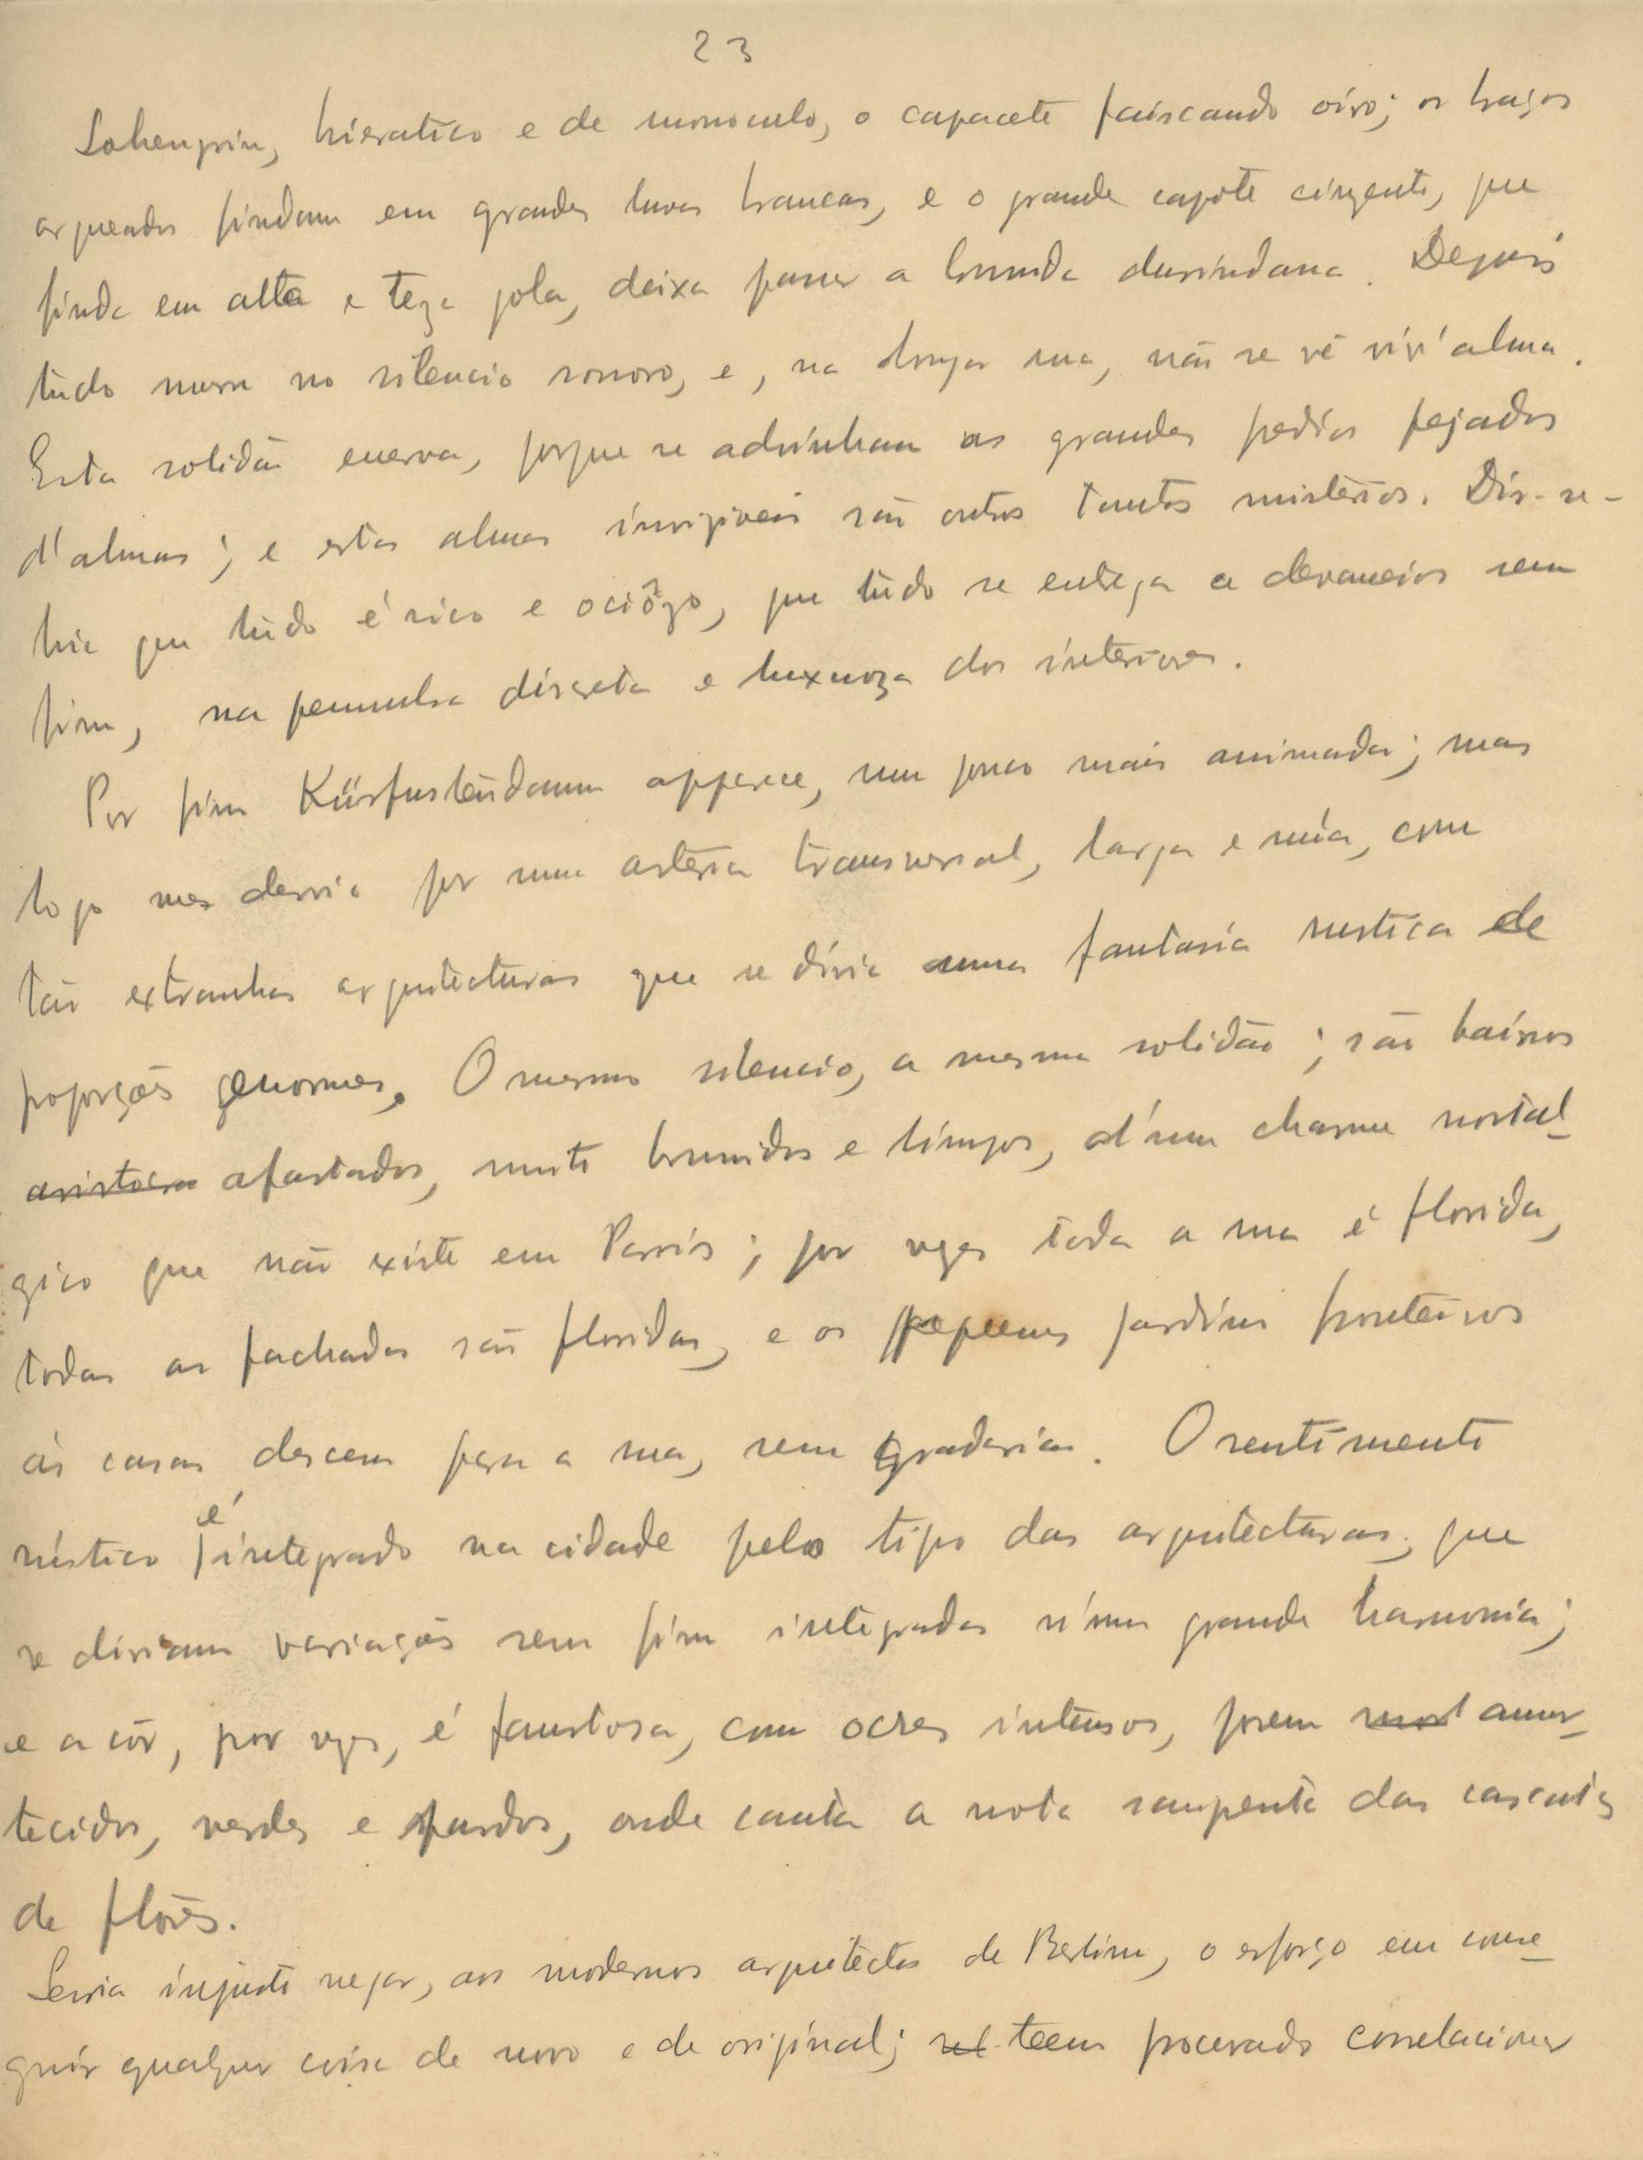 23
Lohengrin, hieratico e de monoculo, o capacete faiscando oiro; os braços
arqueados findam em grandes luvas brancas, e o grande capote cinzento, que
finda em alta e teza gola, deixa passar a brunida durindana. Depois
tudo morre no silencio sonoro, e, na longa rua, não se vê viv'alma.
Esta solidão enerva, porque se advinham os grandes predios pejados
d'almas; e estas almas invizíveis são outros tantos mistérios. Dir-se-
hia que tudo é rico e ociôzo, que tudo se entrega a devaneios sem
fim, na penumbra discreta e luxuoza dos interiores.
Por fim Kürfustendamm apparece, um pouco mais animada; mas
logo nos desvia por uma artéria transversal, larga e núa, com
tão extranhas arquitecturas que se diria uma fantasía rustica de
proporções enormes. O mesmo silencio, a mesma solidão; são bairros
aristocra afastados, muito brunidos e limpos, d'um charme nostal-
gico que não existe em Parris; por vezes toda a rua é florida,
todas as fachadas são floridas, e os pequenos jardins fronteiros
ás casas descem para a rua, sem gradarias. O sentimento
rústico é integrado na cidade pelo tipo das arquitecturas, que
se diriam variações sem fim integradas n'uma grande harmonia;
e a côr, por vezes, é faustosa, com ocres intensos, porem mort amor-
tecidos, verdes e pardos, onde canta a nota rompente das cascatas
de flôres.
Seria injusto negar, aos modernos arquitectos de Berlim, o esforço em conse-
guir qualquer coisa de novo e de original; teem procurado correlacionar